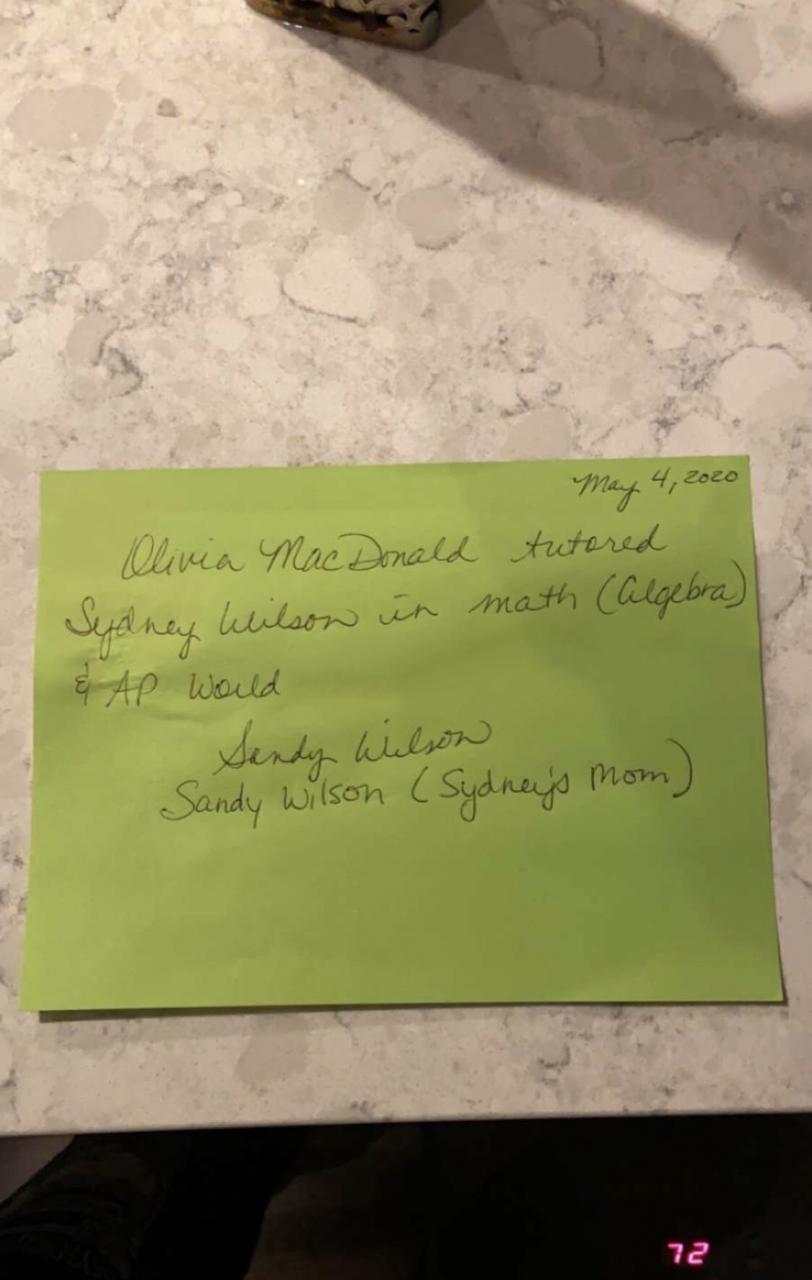 May 4, 2020
Olivia MacDonald tutored
Sydney Wilson in math (Algebra)
& AP World
Sandy Wilson
Sandy Wilson (Sydney's Mom)
72